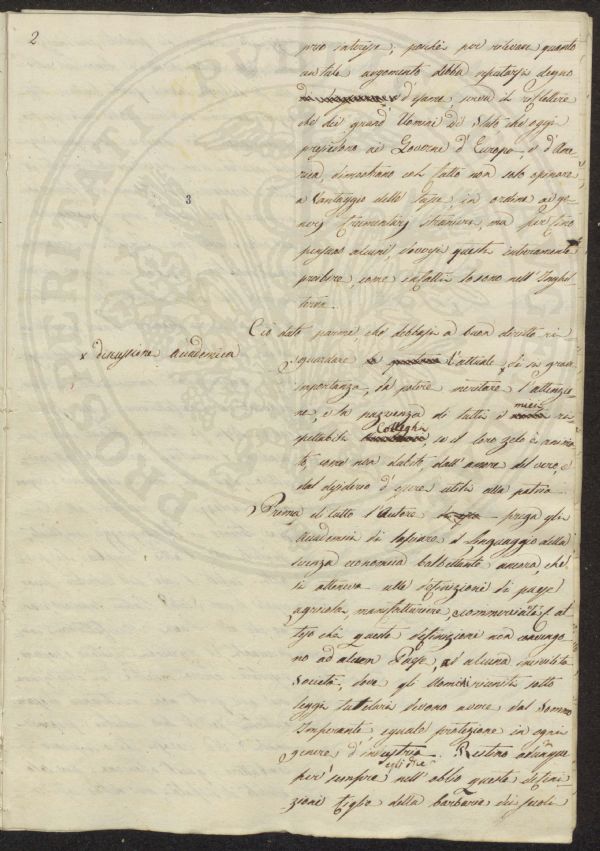 2
prio interesse; poichè per rilevare quanto
un tale argomento debba reputarsi degno
di d'esame, serva il riflettere
che dei grand' Uomini di Stato che oggi
presiedono ai Governi d'Europa, e d'Ame
rica, dimostrano col fatto non solo opinare
a vantaggio delle tasse, in ordine ai ge
neri frumentarj stranieri, ma per fino
pensar alcuni, doversi questi interamente
proibire come infatti lo sono nell'Inghil
terra.
3
Ciò dato parmi, che debbasi a buon diritto ri
x discussione Accademica
guardare l'attuale x di sì grave
importanza, da potere meritare l'attenzio
ne, e la pazienza di tutti i miei ri
spettabili Colleghi, se il loro zelo è anima
to, come non dubito, dall'amore del vero, e
dal desiderio d'essere utili alla patria.
Prima di tutto l'Autore prega gli
Accademici di lasciare il linguaggio della
scienza economica balbettante ancora, che
si atteneva alle definizioni di paese
agricola, manifatturiere, commerciale, at
teso che queste definizioni non convengo
no ad alcun Paese, ad alcuna incivilita
Società, dove gli Uomini riuniti sotto
leggi tutelari devono avere dal Sommo
Imperante eguale protezione in ogni
genere d'industria. Restino adunque
egli dice
per sempre nell'oblio queste defini
zioni figlie della barbarie dei secoli